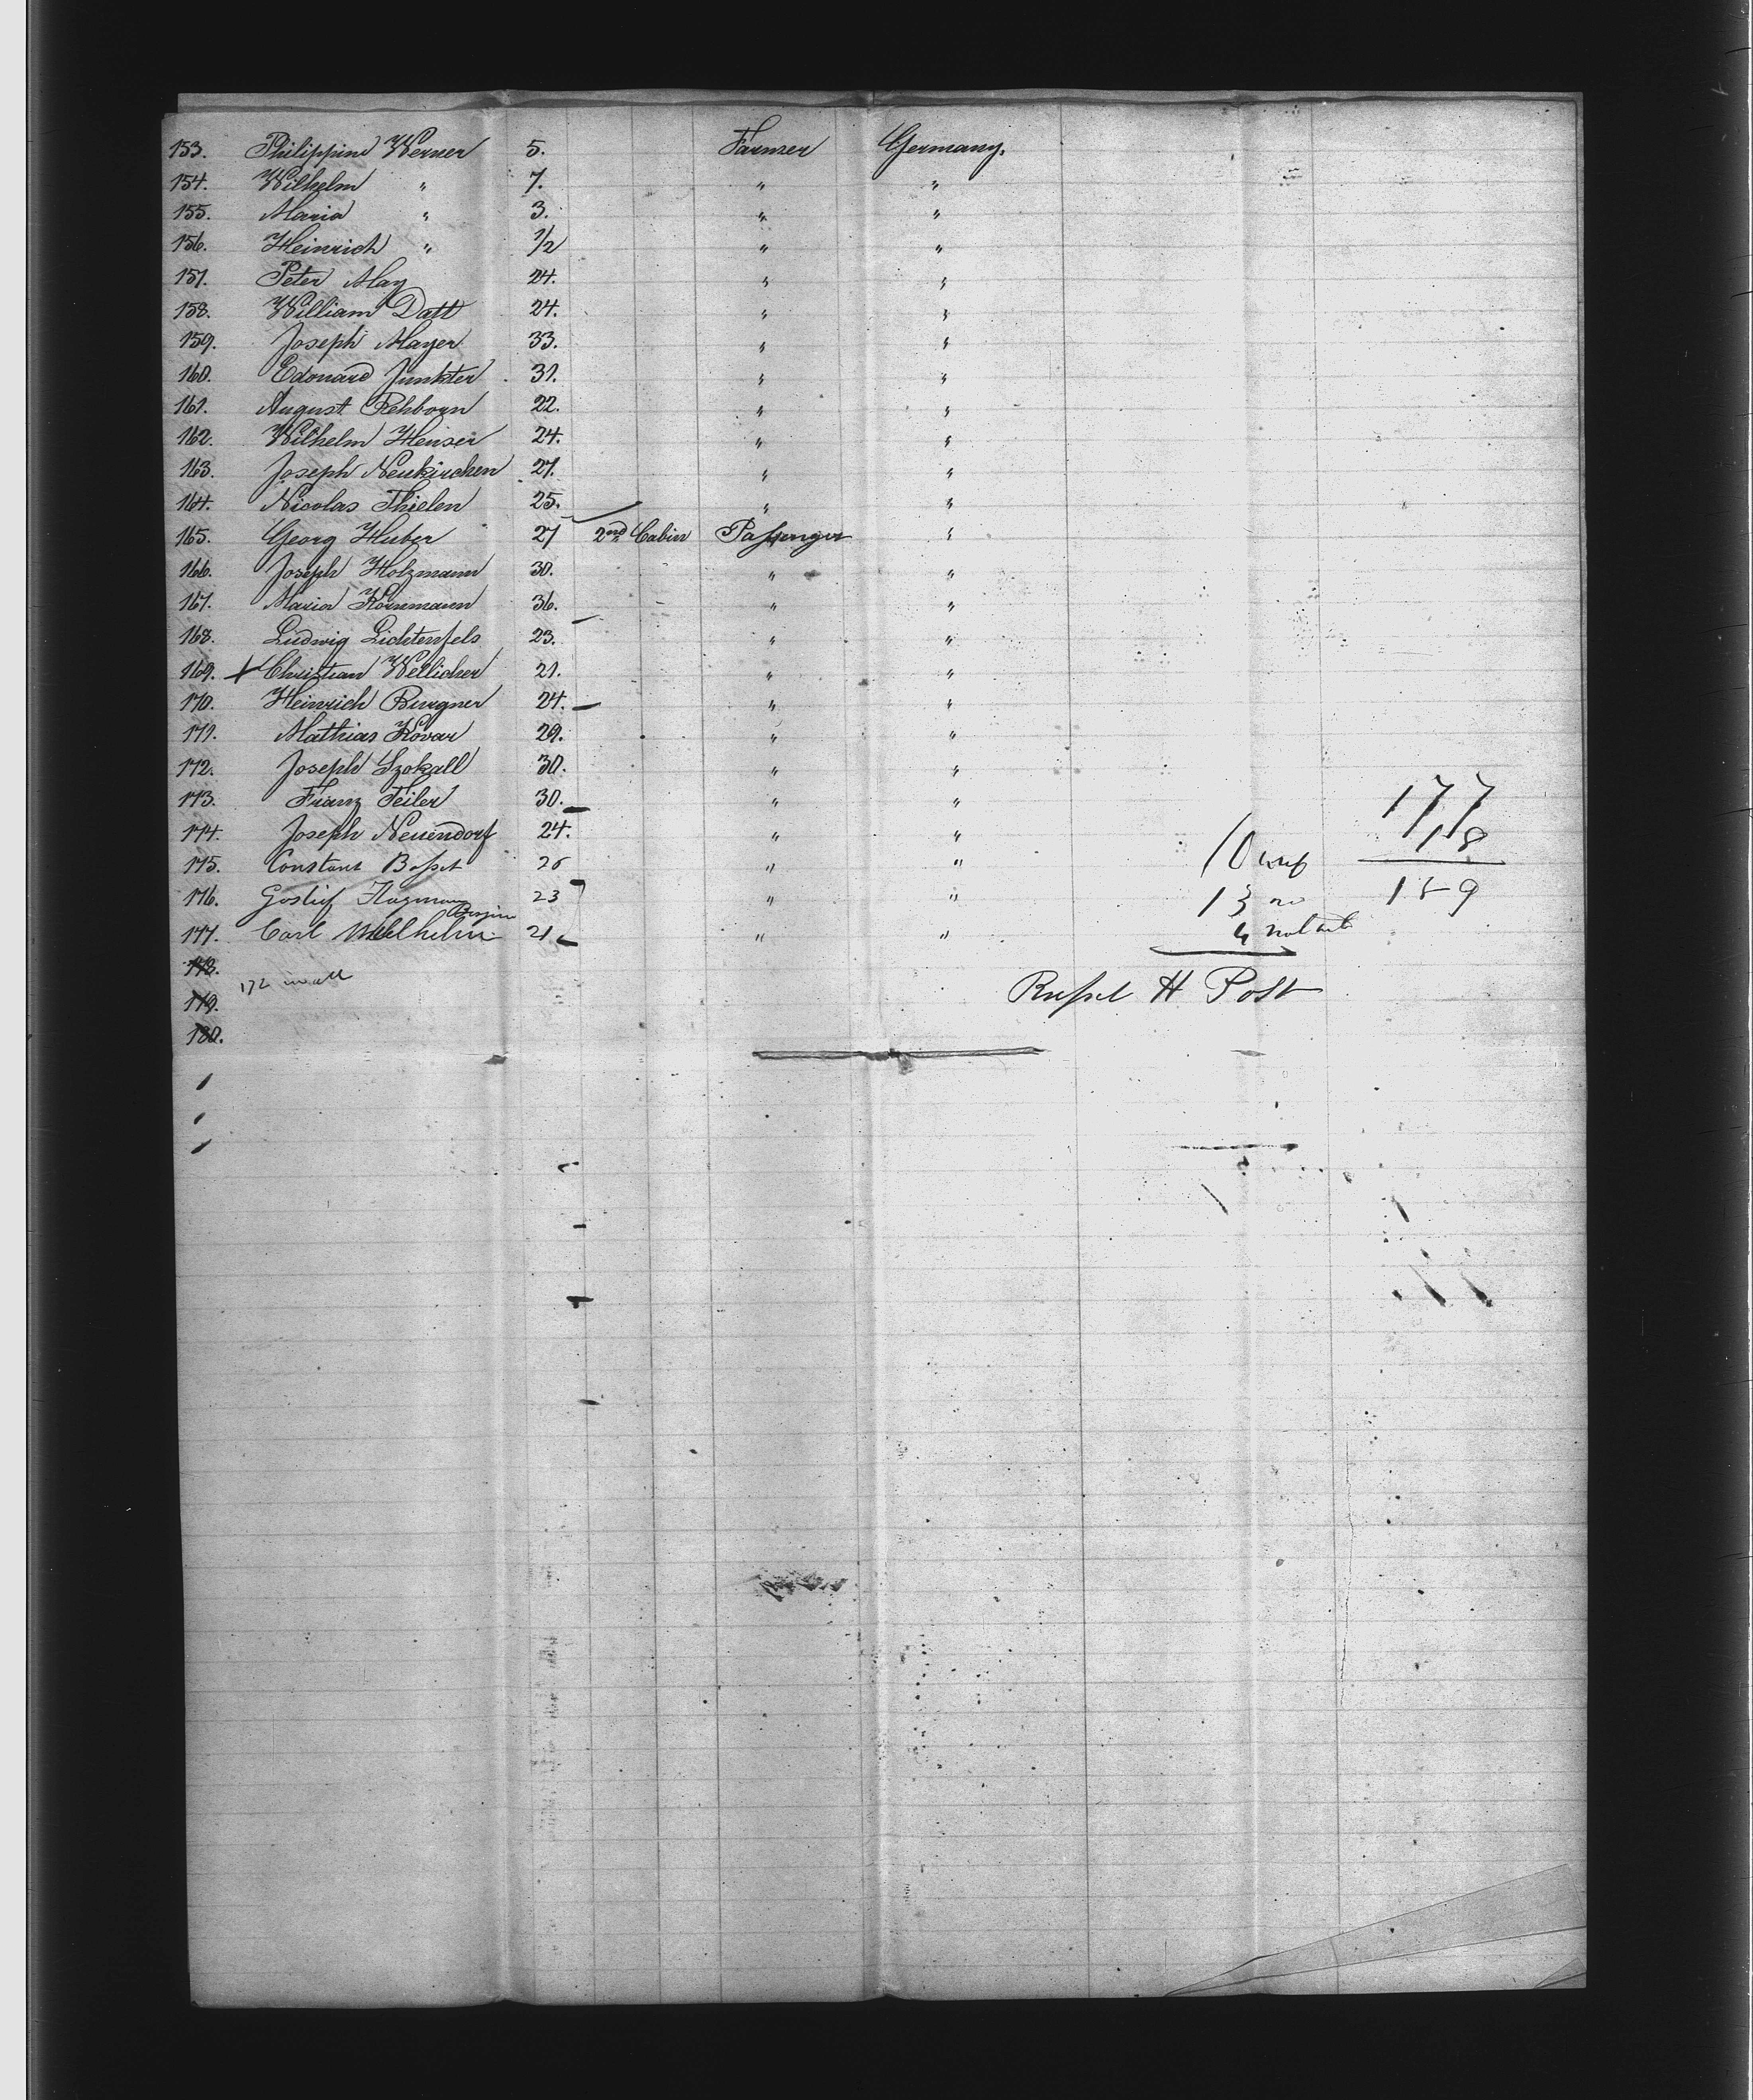 153. Philippine Werner 5. Farmer Germany.
154. Wilhelm " 7. " "
155. Maria " 3. " "
156. Heinrich " 1/2 " "
157. Peter May 24. " "
158. William Datt 24. " "
159. Joseph Mayer 33. " "
160. Edouard Junkter 31. " "
161. August Rehborn 22. " "
162. Wilhelm Heuser 24. " "
163. Joseph Neukirchen 27. " "
164. Nicolas Thielen 25. " "
165. Georg Huber 27 2nd Cabin Passenger "
166. Joseph Holzmann 30. " "
167. Maria Kornmann 36. " "
168. Ludwig Lichtenfels 23. " "
169. + Christian Wellicher 21. " "
170. Heinrich Burgner 24. " "
171. Mathias Kovar 29. " "
172. Joseph Szokall 30. " "
173. Franz Teiler 30. " "
177
174. Joseph Neuendorf 24. " "
18
175. Constant Bosset 26 " "
10
159
176. 23 " "
13 no
177. Carl Wilhelm 21 " "
4 not
178.
172
179.
Russel H Post
180.